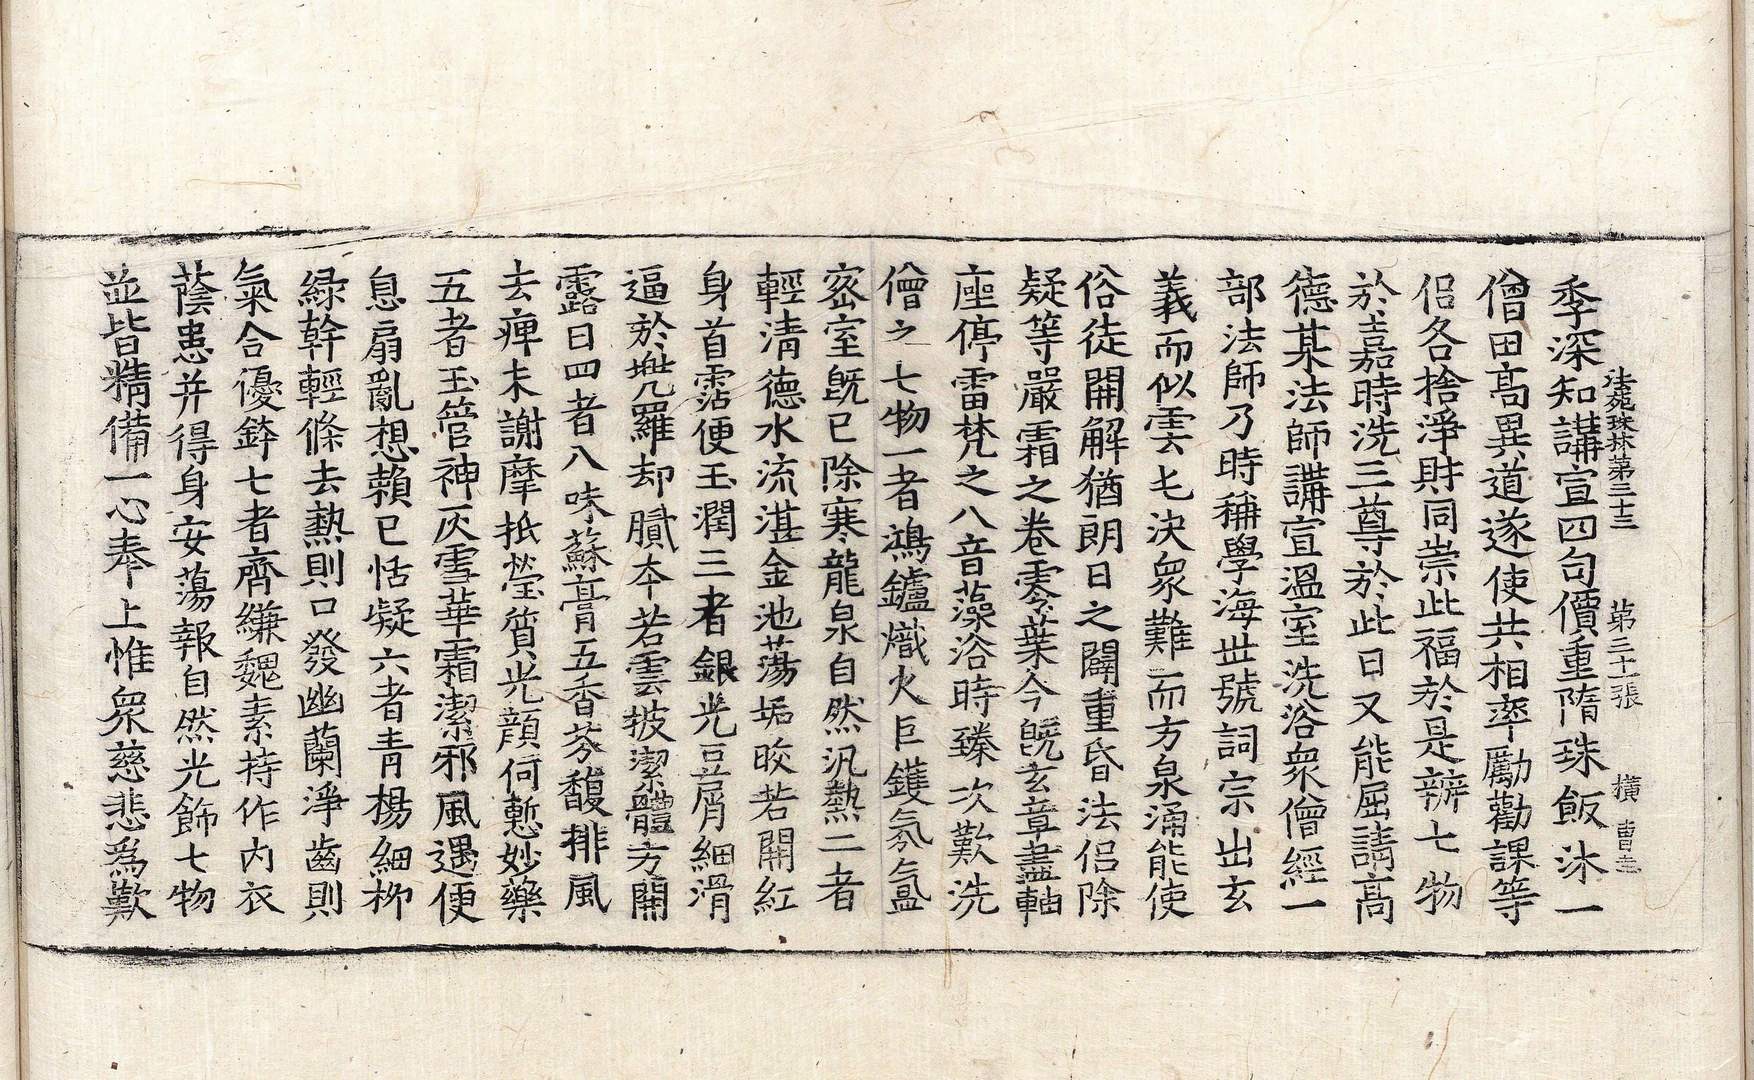 法苑珠林第三十三　第二十一張　橫
季深知講宣四句價重隋珠飯沐一
僧田高異道遂使共相率勵勸課等
侶各捨淨財同崇此福於是辦七物
於嘉時洗三尊於此日又能屈請高
德某法師講宣溫室洗浴衆僧經一
部法師乃時稱學海世號詞宗出玄
義而似雲七決衆難而方泉涌能使
俗徒開解猶朗日之闢重昏法侶除
疑等嚴霜之卷零葉今旣玄章盡軸
座停雷梵之八音藻浴時臻次歎洗
僧之七物一者鴻鑪熾火巨鑊氛氳
密室旣已除寒龍泉自然汎熱二者
輕清德水流湛金池蕩垢皎若開紅
身首霑便玉潤三者銀光豆屑細滑
逼於兠羅却膩本若雲披潔體方開
露日四者八味蘇膏五香芬馥排風
去痺未謝摩拭瑩質光顏何慙妙藥
五者玉管神灰雪華霜潔邪風遇便
息扇亂想賴已恬凝六者青楊細柳
綠幹輕條去熱則口發幽蘭淨齒則
氣合優鉢七者齊縑魏素持作內衣
蔭患并得身安蕩報自然光飾七物
並皆精備一心奉上惟衆慈悲爲歎